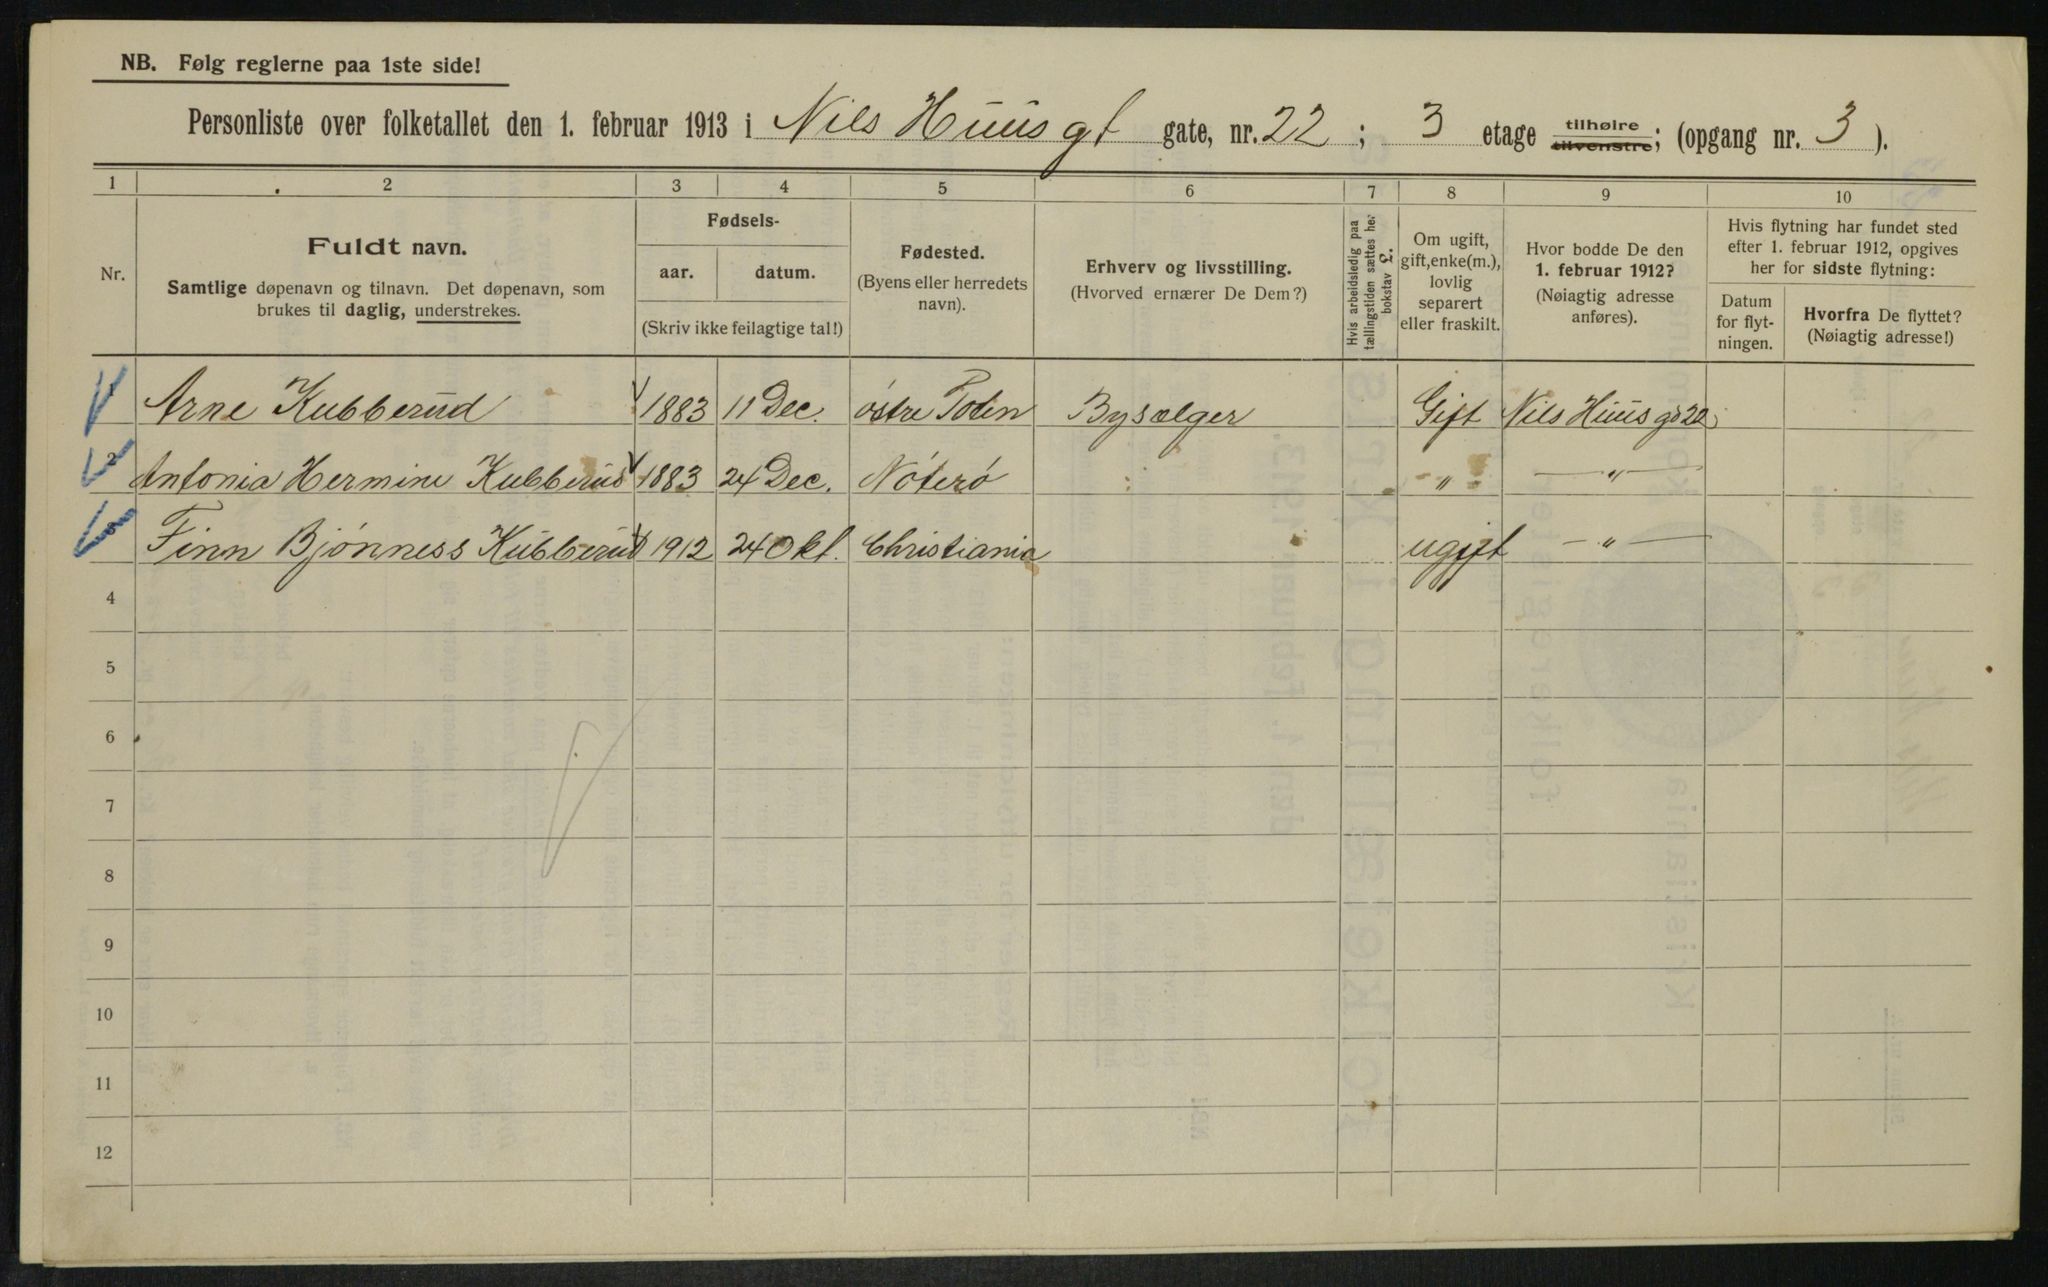 NB. Følg reglerne paa 1ste side!
Personliste over folketallet den 1. februar 1913 i Nils Huus gt gate, nr. 22 ; 3 etage tilhøire tilvenstre; (opgang nr. 3 ).
1 2 3 4 5 6 7 8 9 10
Nr.
Fuldt navn.
Samtlige døpenavn og tilnavn. Det døpenavn, som
brukes til daglig, understrekes.
Fødsels-
aar. datum.
(Skriv ikke feilagtige tal!)
Fødested.
(Byens eller herredets
navn).
Erhverv og livsstilling.
(Hvorved ernærer De Dem?)
Hvis arbeidsledig paa
tællingstiden sættes her
bokstav L.
Om ugift,
gift, enke(m.),
lovlig
separert
eller fraskilt.
Hvor bodde De den
1. februar 1912?
(Nøiagtig adresse
anføres).
Hvis flytning har fundet sted
efter 1. februar 1912, opgives
her for sidste flytning:
Datum
for flyt-
ningen.
Hvorfra De flyttet?
(Nøiagtig adresse!)
1 Arne Kubberud 1883 11 Dec. østre Toten Bysælger Gift Nils Huus gd 22
2 Antonia Hermine Kubberud 1883 24 Dec. Nöterö " — " —
3 Finn Bjønness Kubberud 1912 24 Okt. Christiania ugift — " —
4
5
6
7
8
9
10
11
12